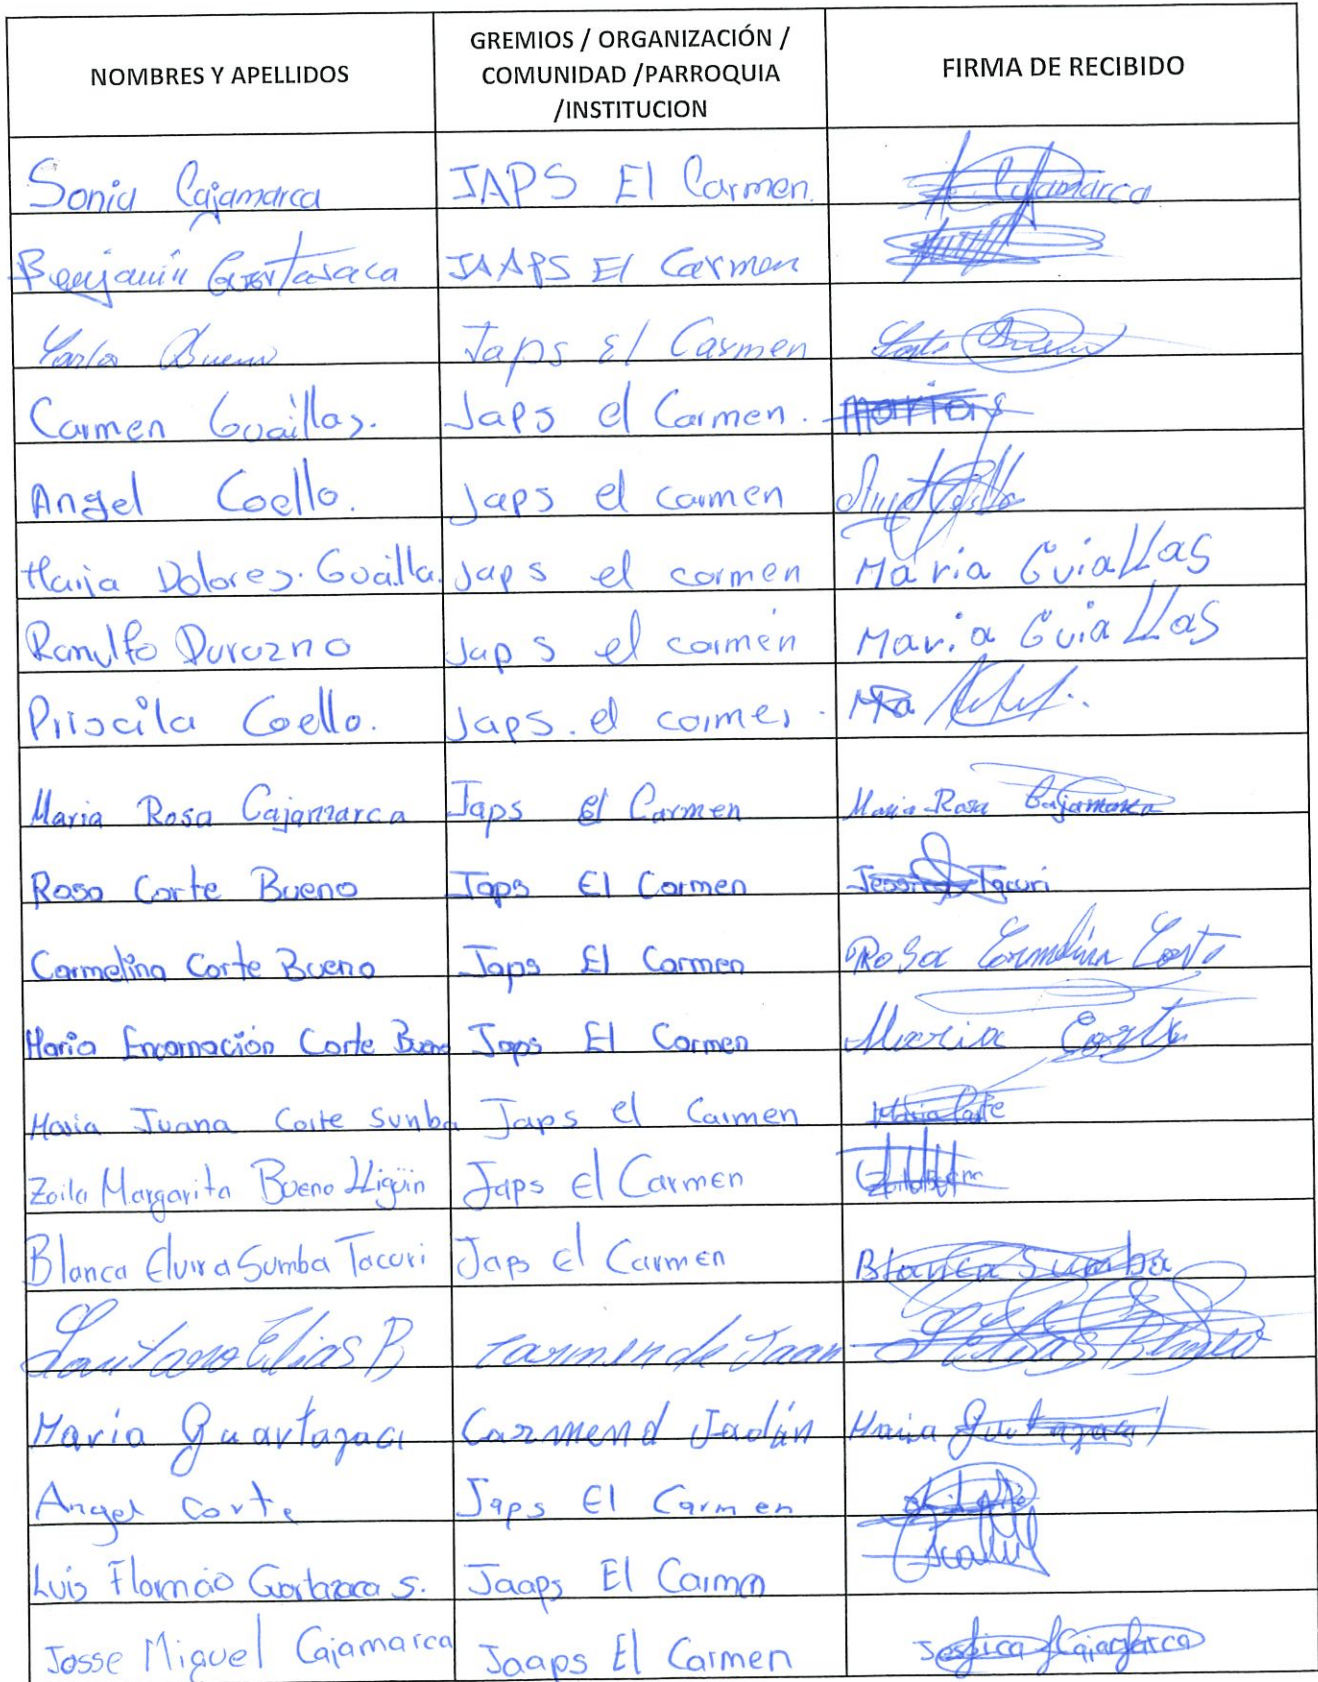 NOMBRES Y APELLIDOS
GREMIOS / ORGANIZACIÓN /
COMUNIDAD /PARROQUIA
/INSTITUCION
FIRMA DE RECIBIDO
Sonia Cajamarca JAPS El Carmen. Cajamarca
Benjamin JAAPS El Carmen
Bueno Japs El Carmen
Carmen Guaillas. Japs el Carmen.
Angel Coello. Japs el carmen
Maria Dolores. Guailla. Japs el carmen Maria GuiaLLas
Ranulfo Durazno Japs el carmen Maria GuiaLLas
Priscila Coello. Japs. el
Maria Rosa Cajamarca Japs El Carmen Maria Rosa Cajamarca
Rosa Corte Bueno Japs El Carmen Jessica Tacuri
Carmelina Corte Bueno Japs El Carmen Rosa Carmelina Corte
Maria Encarnación Corte Bueno Japs El Carmen Maria Corte
Maria Juana Corte Sumba Japs el Carmen Maria Corte
Zoila Margarita Bueno Lligüin Japs El Carmen
Blanca Elvira Sumba Tacuri Japs El Carmen Blanca Sumba
Elias B carmen de Elias
Maria Guartazaca Carmen d Jadán Maria
Angel Corte Japs El Carmen
Luis S. Jaaps El
Josse Miguel Cajamarca Jaaps El Carmen Jessica Cajamarca